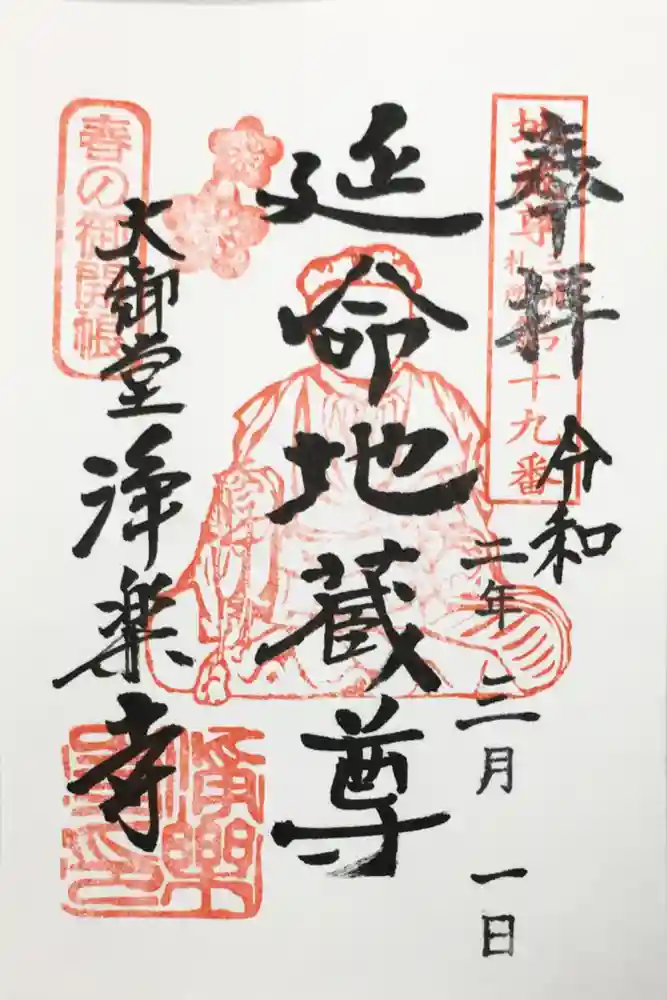 奉拝
令和
二年 二月 一日
地蔵尊
札所
十九番
延命地蔵尊
春の御開帳
大御堂
浄楽寺